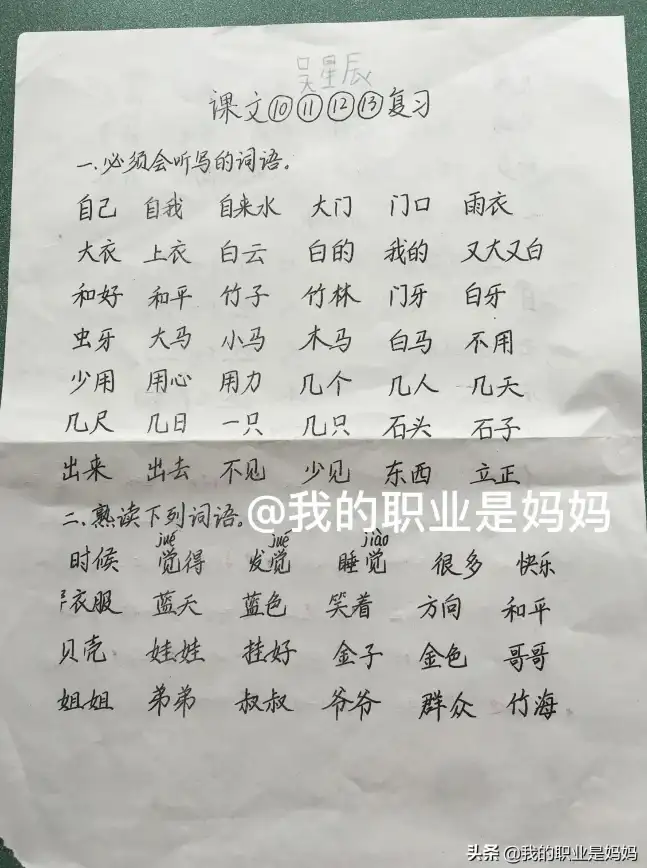 吴星辰
课文⑩⑪⑫⑬复习
一、必须会听写的词语。
自己 自我 自来水 大门 门口 雨衣
大衣 上衣 白云 白的 我的 又大又白
和好 和平 竹子 竹林 门牙 白牙
虫牙 大马 小马 木马 白马 不用
少用 用心 用力 几个 几人 几天
几尺 几日 一只 几只 石头 石子
出来 出去 不见 少见 东西 立正
二、熟读下列词语。
@我的职业是妈妈
jué jué jiào
时候 觉得 发觉 睡觉 很多 快乐
衣服 蓝天 蓝色 笑着 方向 和平
贝壳 娃娃 挂好 金子 金色 哥哥
姐姐 弟弟 叔叔 爷爷 群众 竹海
头条 @我的职业是妈妈